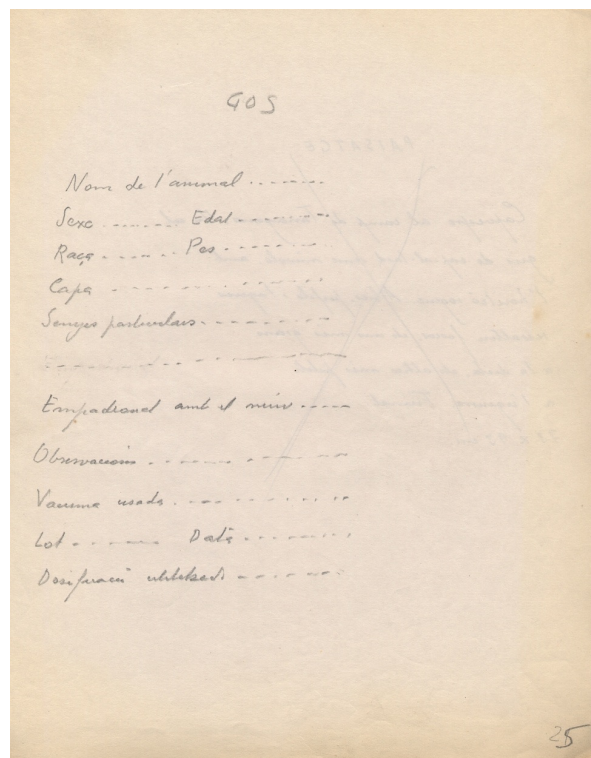 GOS
Nom de l'animal .......
Sexo ....... Edat .......
Raça ....... Pes .......
Capa .......
Senyes particulars .......
.......
Empadronat amb el núm .....
Observacions .......
Vacuna usada .......
Lot ....... Data .......
Dosificació utilitzada .......
25